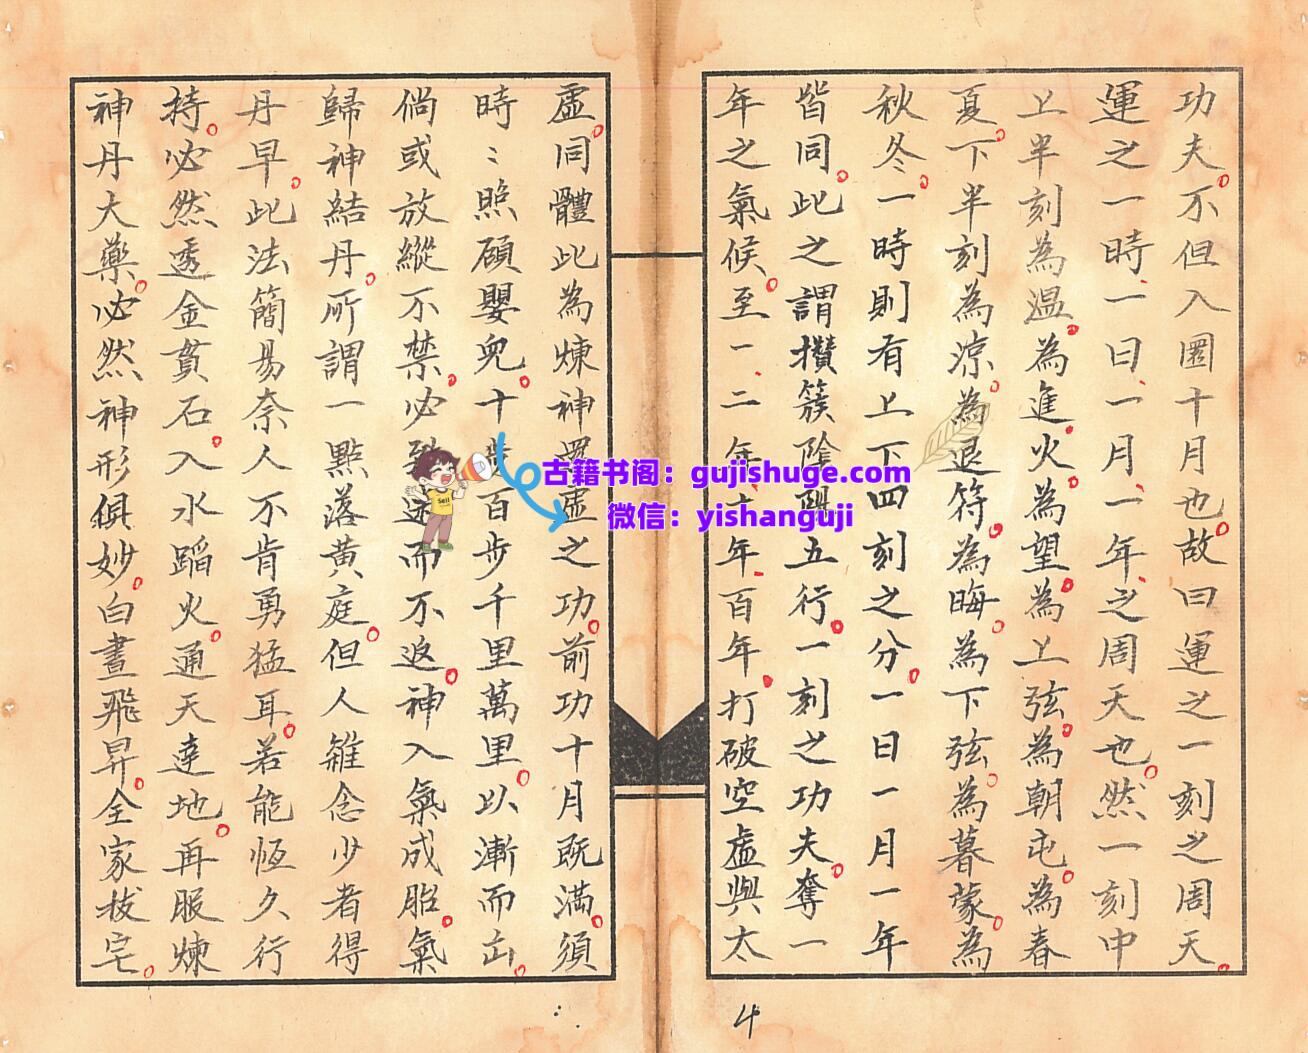 功夫。不但入圜十月也。故曰運之一刻之周天。
運之一時、一日、一月、一年、之周天也。然一刻中
上半刻為溫。為進火。為望。為上弦。為朝屯。為春
夏。下半刻為涼。為退符。為晦。為下弦。為暮蒙。為
秋冬。一時則有上下四刻之分。一日一月一年
皆同。此之謂攢簇陰陽五行。一刻之功夫。奪一
年之氣候。至一、二年、十年、百年。打破空虛與太
虛。同體此為煉神還虛之功。前功十月既滿。須
時〻照顧嬰兒。十步百步千里萬里。以漸而出。
倘或放縱不禁。必致迷而不返。神入氣成胎。氣
歸神結丹。所謂一點落黃庭。但人雜念少者得
丹早。此法簡易奈人不肯勇猛耳。若能恆久行
持。必然透金貫石。入水蹈火。通天達地。再服煉
神丹大藥。必然神形俱妙。白晝飛昇。全家拔宅。
古籍书阁：gujishuge.com
微信：yishanguji
Sell
4